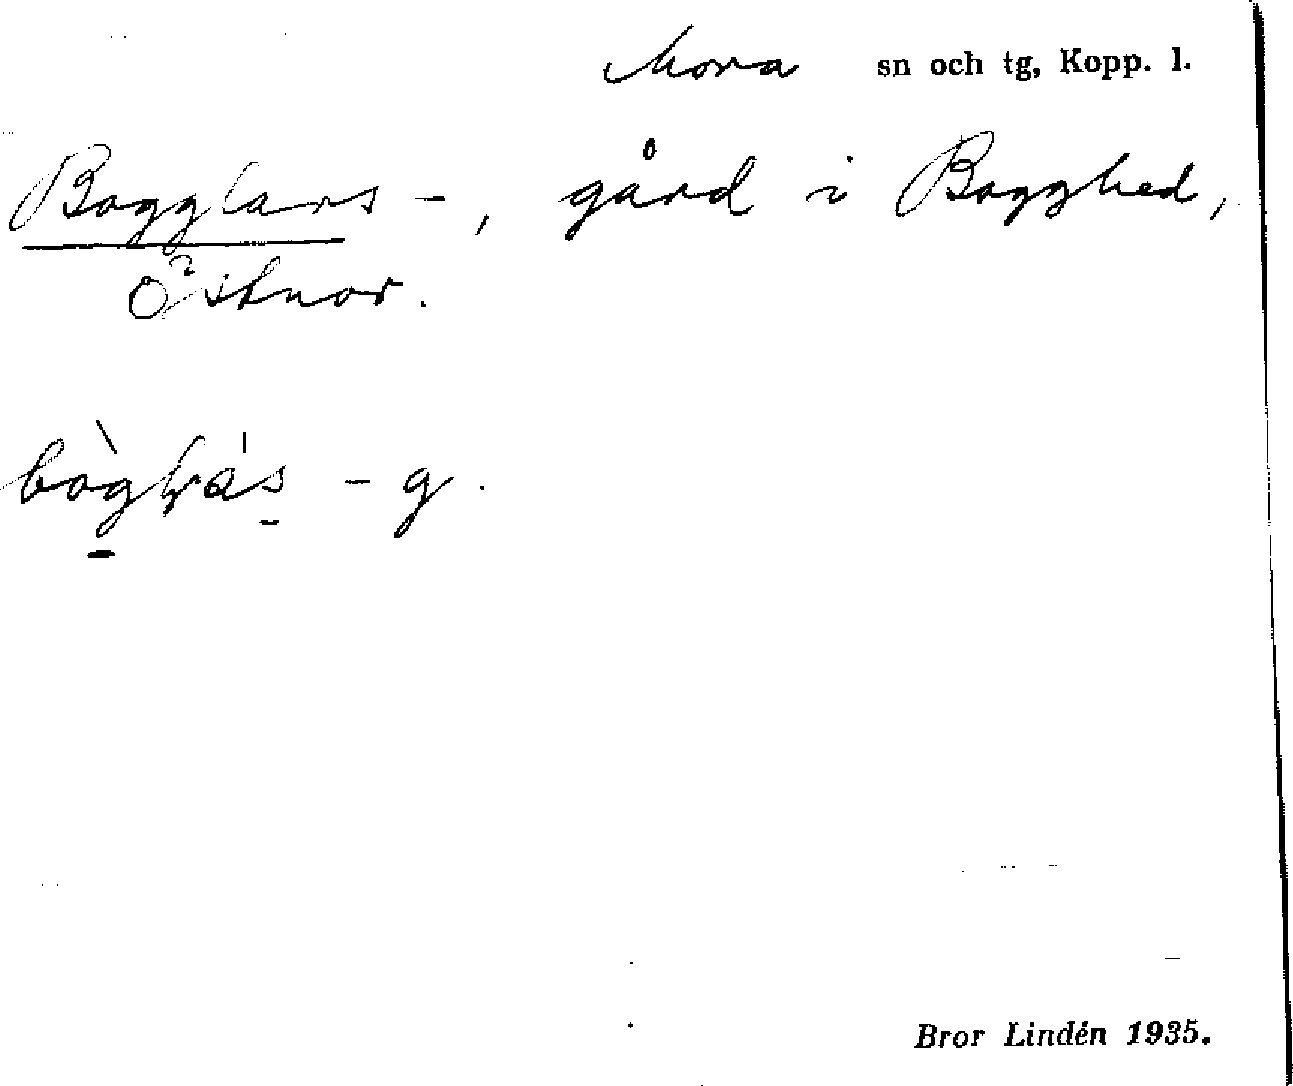 Mora sn och tg, Kopp. l.
Bogglars -, gård i Bogghed,
Östnor.
- g.
Bror Lindén 1935.